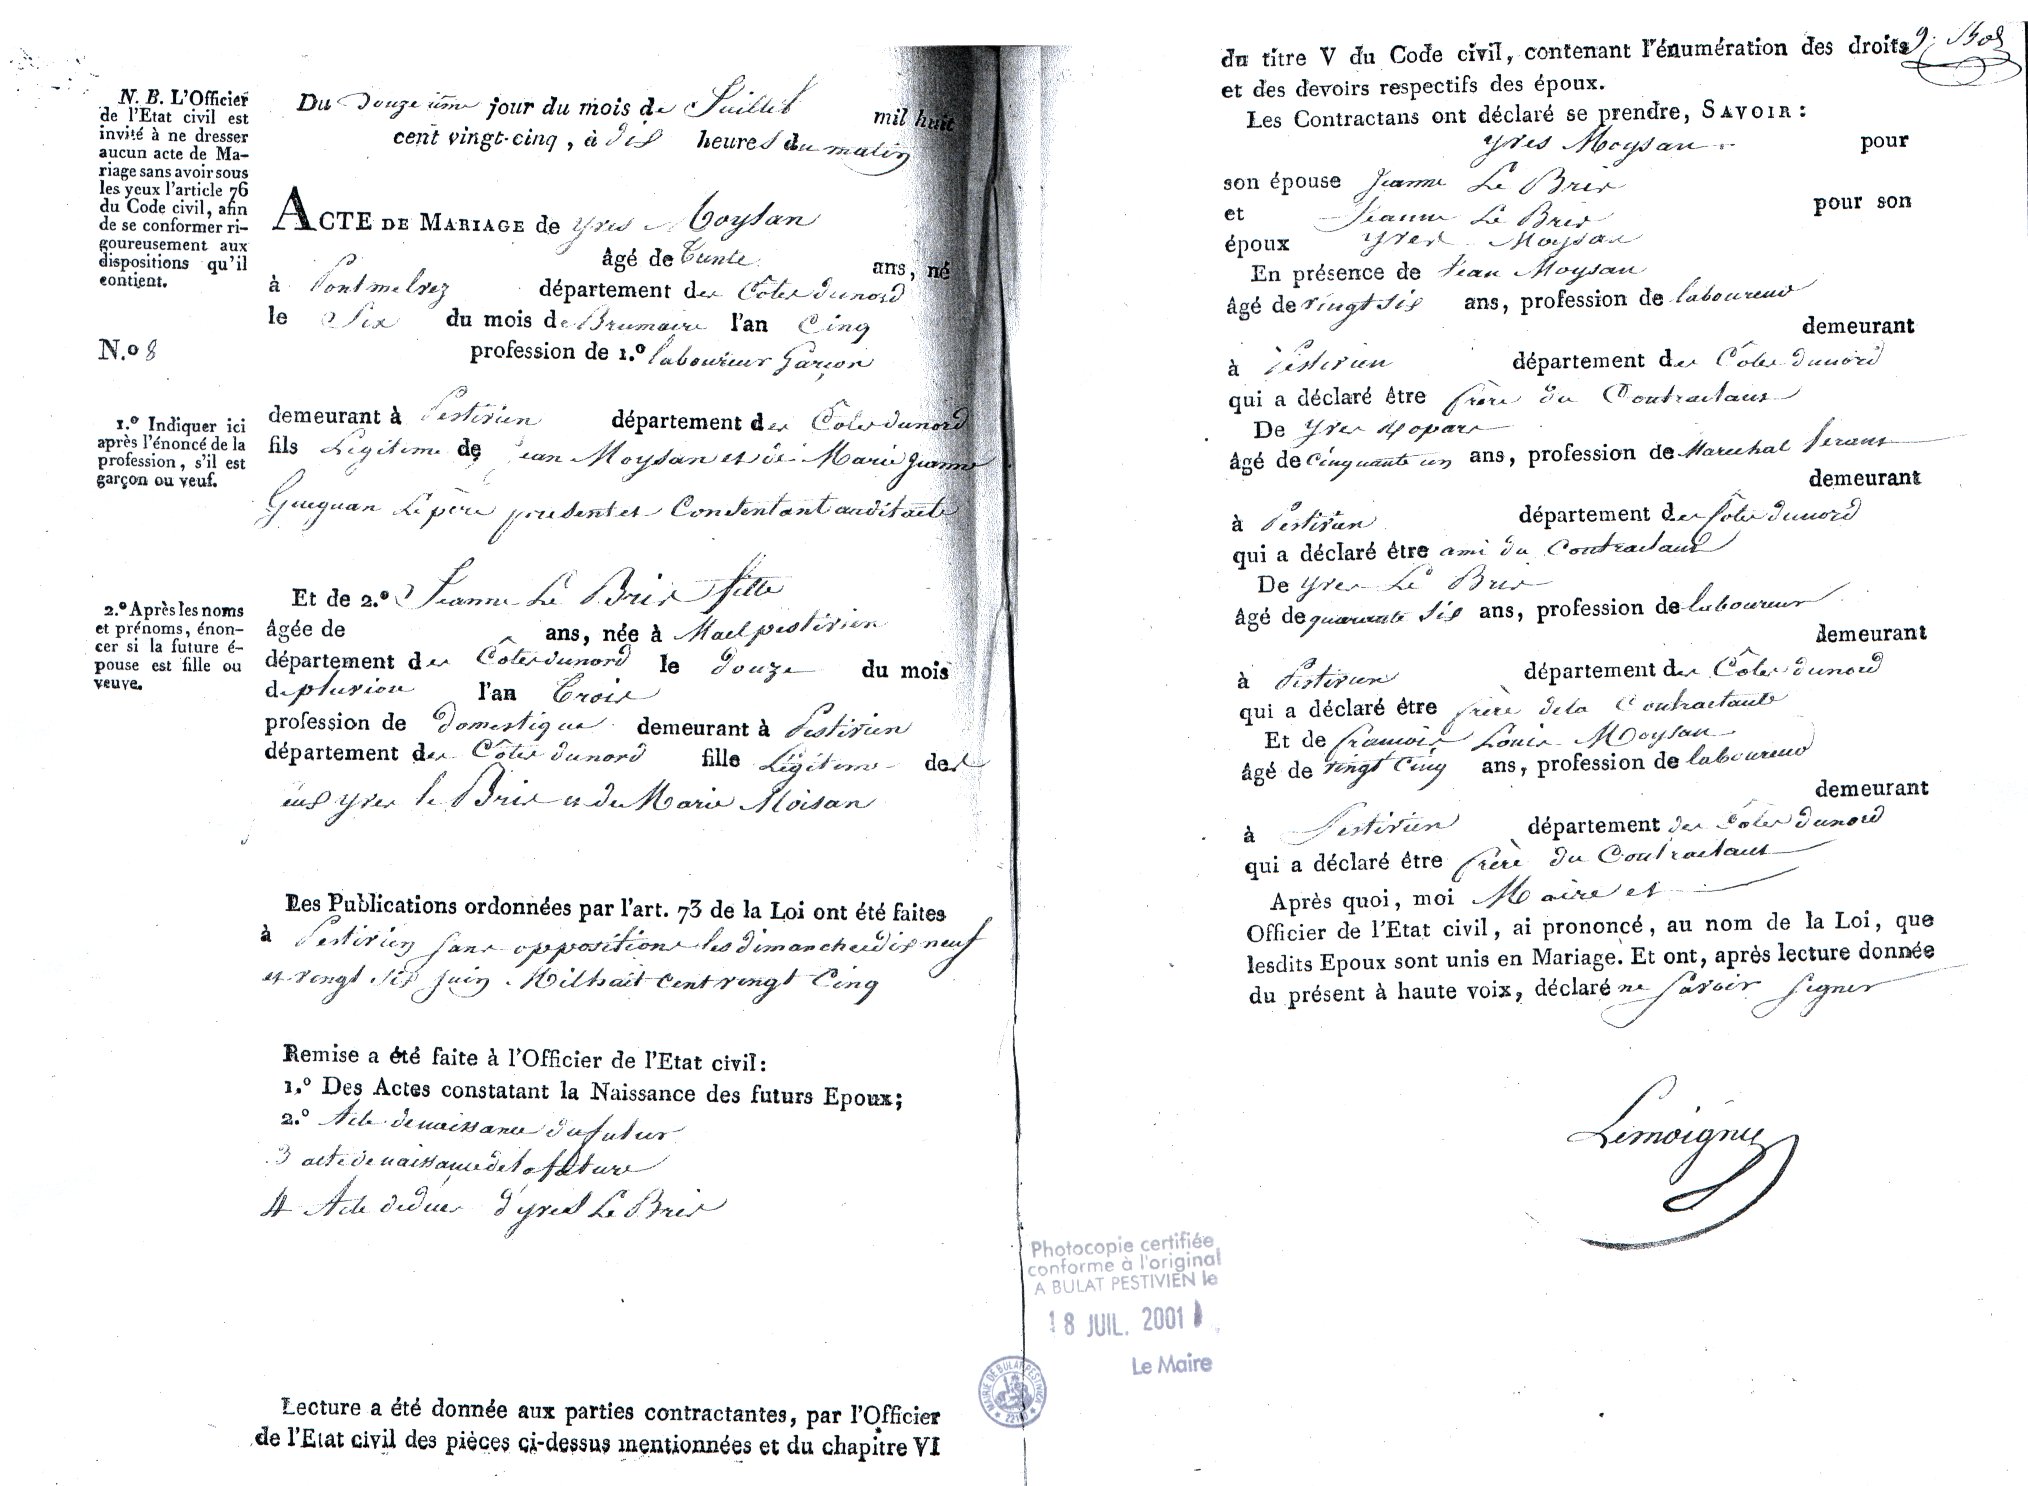 N. B. L'Officier
de l'Etat civil est
invité à ne dresser
aucun acte de Ma-
riage sans avoir sous
les yeux l'article 76
du Code civil, afin
de se conformer ri-
goureusement aux
dispositions qu'il
contient.
N.o 8
1.o Indiquer ici
après l'énoncé de la
profession, s'il est
garçon ou veuf.
2.o Après les noms
et prénoms, énon-
cer si la future é-
pouse est fille ou
veuve.
Du douzeième jour du mois de Juillet mil huit
cent vingt-cinq, à dix heures du matin
ACTE DE MARIAGE de yves Moysan
âgé de trente ans, né
à Pontmelvez département des Côtes dunord
le Six du mois de Brumaire l'an Cinq
profession de 1.o laboureur Garçon
demeurant à Pestivien département des Côtes dunord
fils Légitime de jean Moysan et de Marie jeanne
Gueguan Le père present et Consentant audit acte
Et de 2.o Jeanne Le Bris fille
âgée de ans, née à Maelpestivien
département des Côtes dunord le douze du mois
de pluviose l'an Trois
profession de domestique demeurant à Pestivien
département des Côtes dunord fille Légitime de
yves le Bris et de Marie Moisan
Les Publications ordonnées par l'art. 73 de la Loi ont été faites
à Pestivien sans oppositions les dimanches dix neuf
et vingt six juin Mil huit cent vingt Cinq
Remise a été faite à l'Officier de l'Etat civil:
1.o Des Actes constatant la Naissance des futurs Epoux;
2.o Acte de naissance du futur
3 acte de naissance de la future
4 Acte de décès d'yves Le Bris
Lecture a été donnée aux parties contractantes, par l'Officier
de l'Etat civil des pièces ci-dessus mentionnées et du chapitre VI
du titre V du Code civil, contenant l'énumération des droits
et des devoirs respectifs des époux.
Les Contractans ont déclaré se prendre, SAVOIR:
yves Moysan pour
son épouse Jeanne Le Bris
et Jeanne Le Bris pour son
époux yves Moysan
En présence de Jean Moysan
âgé de vingt six ans, profession de laboureur
demeurant
à Pestivien département des Côtes dunord
qui a déclaré être frère du Contractant
De yves
âgé de cinquante un ans, profession de Marechal ferant
demeurant
à Pestivien département des Côtes dunord
qui a déclaré être ami du Contractant
De yves Le Bris
âgé de quarante six ans, profession de laboureur
demeurant
à Pestivien département des Côtes dunord
qui a déclaré être frère dela Contractante
Et de francois Louis Moysan
âgé de vingt cinq ans, profession de laboureur
demeurant
à Pestivien département des Côtes dunord
qui a déclaré être frère du Contractant
Après quoi, moi Maire et
Officier de l'Etat civil, ai prononcé, au nom de la Loi, que
lesdits Epoux sont unis en Mariage. Et ont, après lecture donnée
du présent à haute voix, déclaré ne savoir signer
Lemoigne
Photocopie certifiée
conforme à l'original
A BULAT PESTIVIEN le
18 JUIL. 2001
Le Maire
MAIRIE DE BULAT-PESTIVIEN